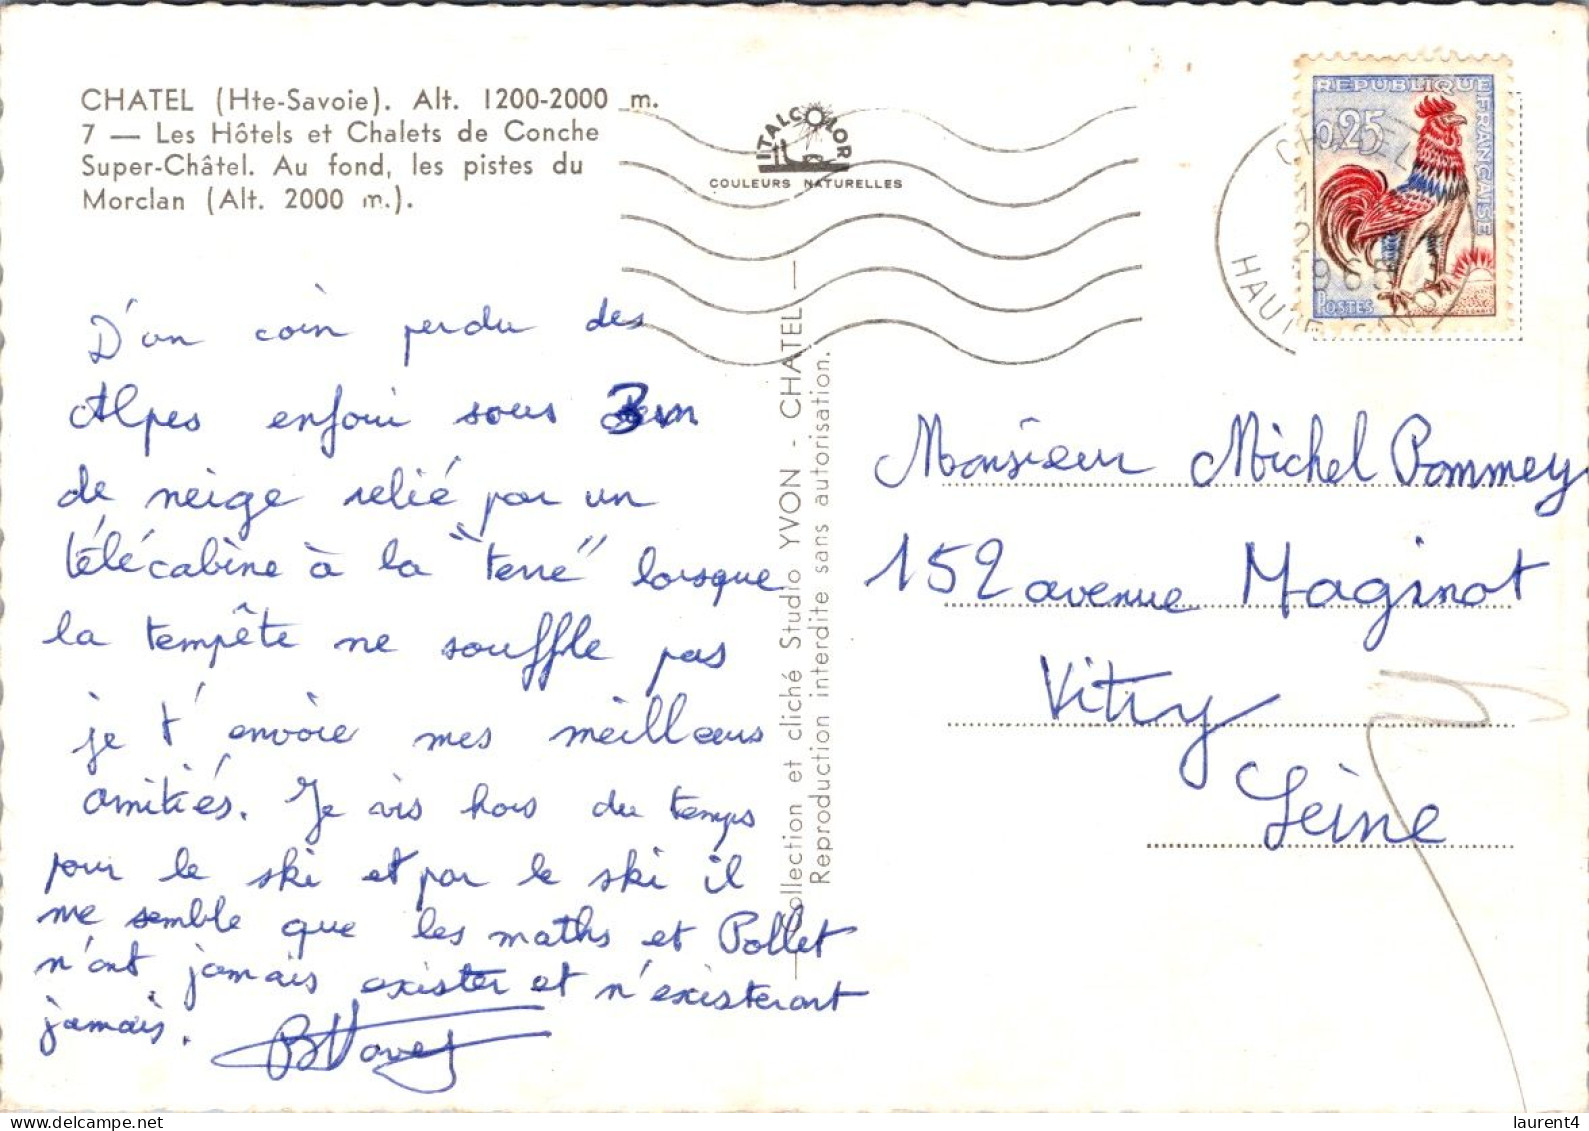 CHATEL (Hte-Savoie). Alt. 1200-2000 m.
7 — Les Hôtels et Chalets de Conche
Super-Châtel. Au fond, les pistes du
Morclan (Alt. 2000 m.).
ITALCOLOR
COULEURS NATURELLES
REPUBLIQUE FRANÇAISE
0,25
POSTES
CHATEL
1965
HAUTE-SAVOIE
D'un coin perdu des
Alpes enfoui sous 3m
de neige relié par un
télécabine à la "terre" lorsque
la tempête ne souffle pas
je t'envoie mes meilleurs
amitiés. Je vis hors du temps
pour le ski et par le ski il
me semble que les maths et Pollet
n'ont jamais exister et n'existeront
jamais.
Collection et cliché Studio YVON - CHATEL —
Reproduction interdite sans autorisation.
Monsieur Michel Pommey
152 avenue Maginot
Vitry
Seine
laurent4